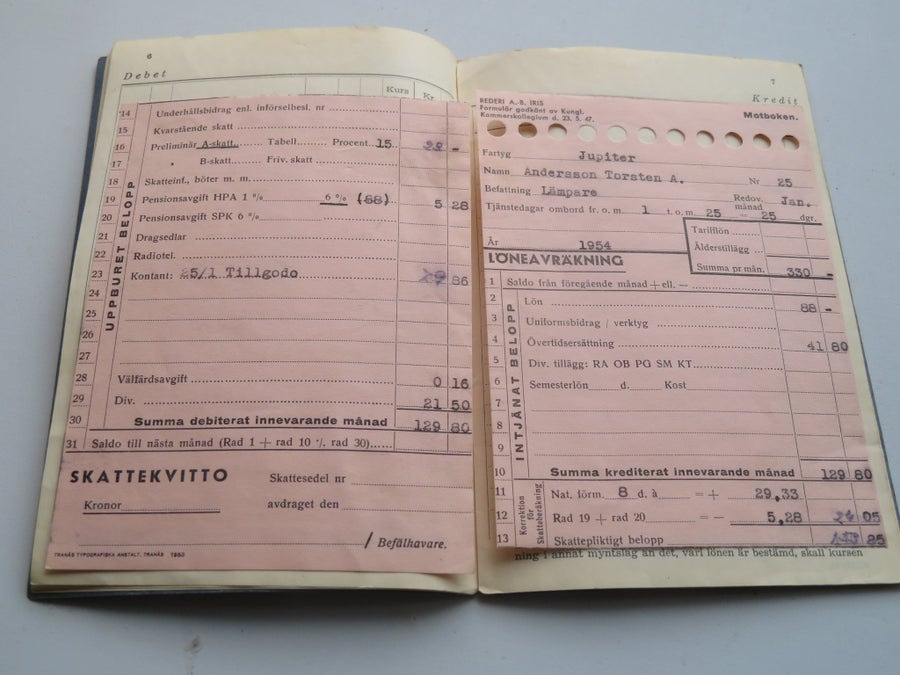 6
Debet
Kurs Kr.
14 Underhållsbidrag enl. införselbesl. nr
15 Kvarstående skatt
16 Preliminär A-skatt Tabell Procent 15 -
17 " B-skatt Friv. skatt
18 Skatteinf., böter m. m.
19 Pensionsavgift HPA 1 % 6 % (88) 5 28
20 Pensionsavgift SPK 6 %
21 Dragsedlar
22 Radiotel.
23 Kontant: 25/1 Tillgodo 86
24
25
26
27
28 Välfärdsavgift 0 16
29 Div. 21 50
30 Summa debiterat innevarande månad 129 80
31 Saldo till nästa månad (Rad 1 + rad 10 ./. rad 30)
UPPBURET BELOPP
SKATTEKVITTO Skattesedel nr
Kronor avdraget den
/ Befälhavare.
TRANÅS TYPOGRAFISKA ANSTALT, TRANÅS 1950
7
Kredit
REDERI A.-B. IRIS
Formulär godkänt av Kungl.
Kommerskollegium d. 23. 5. 47.
Motboken.
Fartyg Jupiter
Namn Andersson Torsten A. Nr 25
Befattning Lämpare Redov. månad Jan.
Tjänstedagar ombord fr. o. m. 1 t. o. m. 25 = 25 dgr.
Tarifflön
Ålderstillägg
År 1954
Summa pr mån. 330 -
LÖNEAVRÄKNING
1 Saldo från föregående månad + ell. -
2 Lön 88 -
3 Uniformsbidrag / verktyg
4 Övertidsersättning 41 80
5 Div. tillägg: RA OB PG SM KT
6 Semesterlön d. Kost
7
8
9
10 Summa krediterat innevarande månad 129 80
INTJÄNAT BELOPP
11 Nat. förm. 8 d. à = + 29,33
12 Rad 19 + rad 20 = — 5,28 24 05
13 Skattepliktigt belopp 85
Korrektion för Skatteberäkning
ning i annat myntslag än det, vari lönen är bestämd, skall kursen